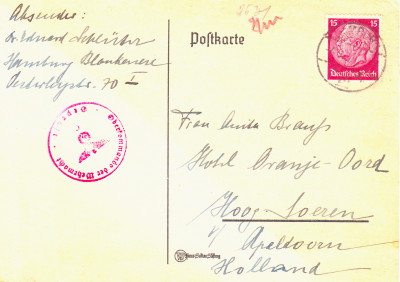 Absender:
Dr Eduard Schlüter
Hamburg Blankenese
70 I
Postkarte
15 15
Deutsches Reich
Oberkommando der Wehrmacht
Frau Anita
Hotel Oranje-Oord
Hoog-Soeren
b/ Apeldoorn
Holland